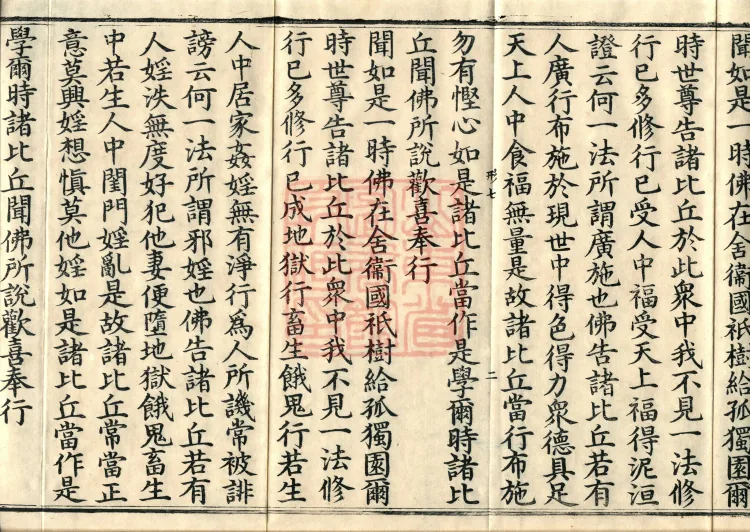 聞如是一時佛在舍衞國祇樹給孤獨園爾
時世尊告諸比丘於此衆中我不見一法修
行已多修行已受人中福受天上福得泥洹
證云何一法所謂廣施也佛告諸比丘若有
人廣行布施於現世中得色得力衆德具足
天上人中食福無量是故諸比丘當行布施
形七
二
勿有慳心如是諸比丘當作是學爾時諸比
丘聞佛所說歡喜奉行
聞如是一時佛在舍衞國祇樹給孤獨園爾
時世尊告諸比丘於此衆中我不見一法修
行已多修行已成地獄行畜生餓鬼行若生
人中居家姦婬無有淨行爲人所譏常被誹
謗云何一法所謂邪婬也佛告諸比丘若有
人婬泆無度好犯他妻便墮地獄餓鬼畜生
中若生人中閨門婬亂是故諸比丘常當正
意莫興婬想愼莫他婬如是諸比丘當作是
學爾時諸比丘聞佛所說歡喜奉行